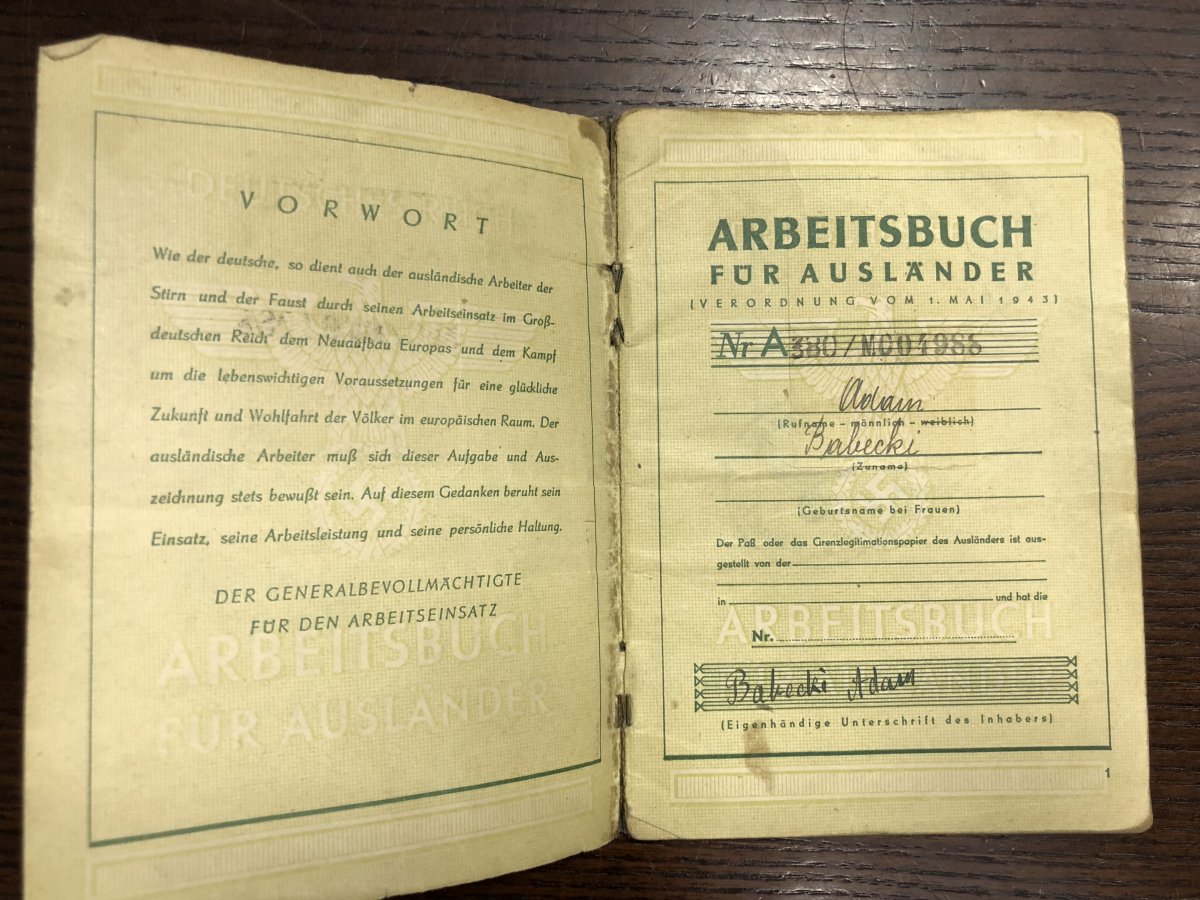 VORWORT
Wie der deutsche, so dient auch der ausländische Arbeiter der
Stirn und der Faust durch seinen Arbeitseinsatz im Groß-
deutschen Reich dem Neuaufbau Europas und dem Kampf
um die lebenswichtigen Voraussetzungen für eine glückliche
Zukunft und Wohlfahrt der Völker im europäischen Raum. Der
ausländische Arbeiter muß sich dieser Aufgabe und Aus-
zeichnung stets bewußt sein. Auf diesem Gedanken beruht sein
Einsatz, seine Arbeitsleistung und seine persönliche Haltung.
DER GENERALBEVOLLMÄCHTIGTE
FÜR DEN ARBEITSEINSATZ
ARBEITSBUCH
FÜR AUSLÄNDER
ARBEITSBUCH
FÜR AUSLÄNDER
(VERORDNUNG VOM 1. MAI 1943)
Nr A380/M004986
Adam
(Rufname – männlich – weiblich)
Babecki
(Zuname)
(Geburtsname bei Frauen)
Der Paß oder das Grenzlegitimationspapier des Ausländers ist aus-
gestellt von der
in und hat die
ARBEITSBUCH
Nr.
Babecki Adam
(Eigenhändige Unterschrift des Inhabers)
1